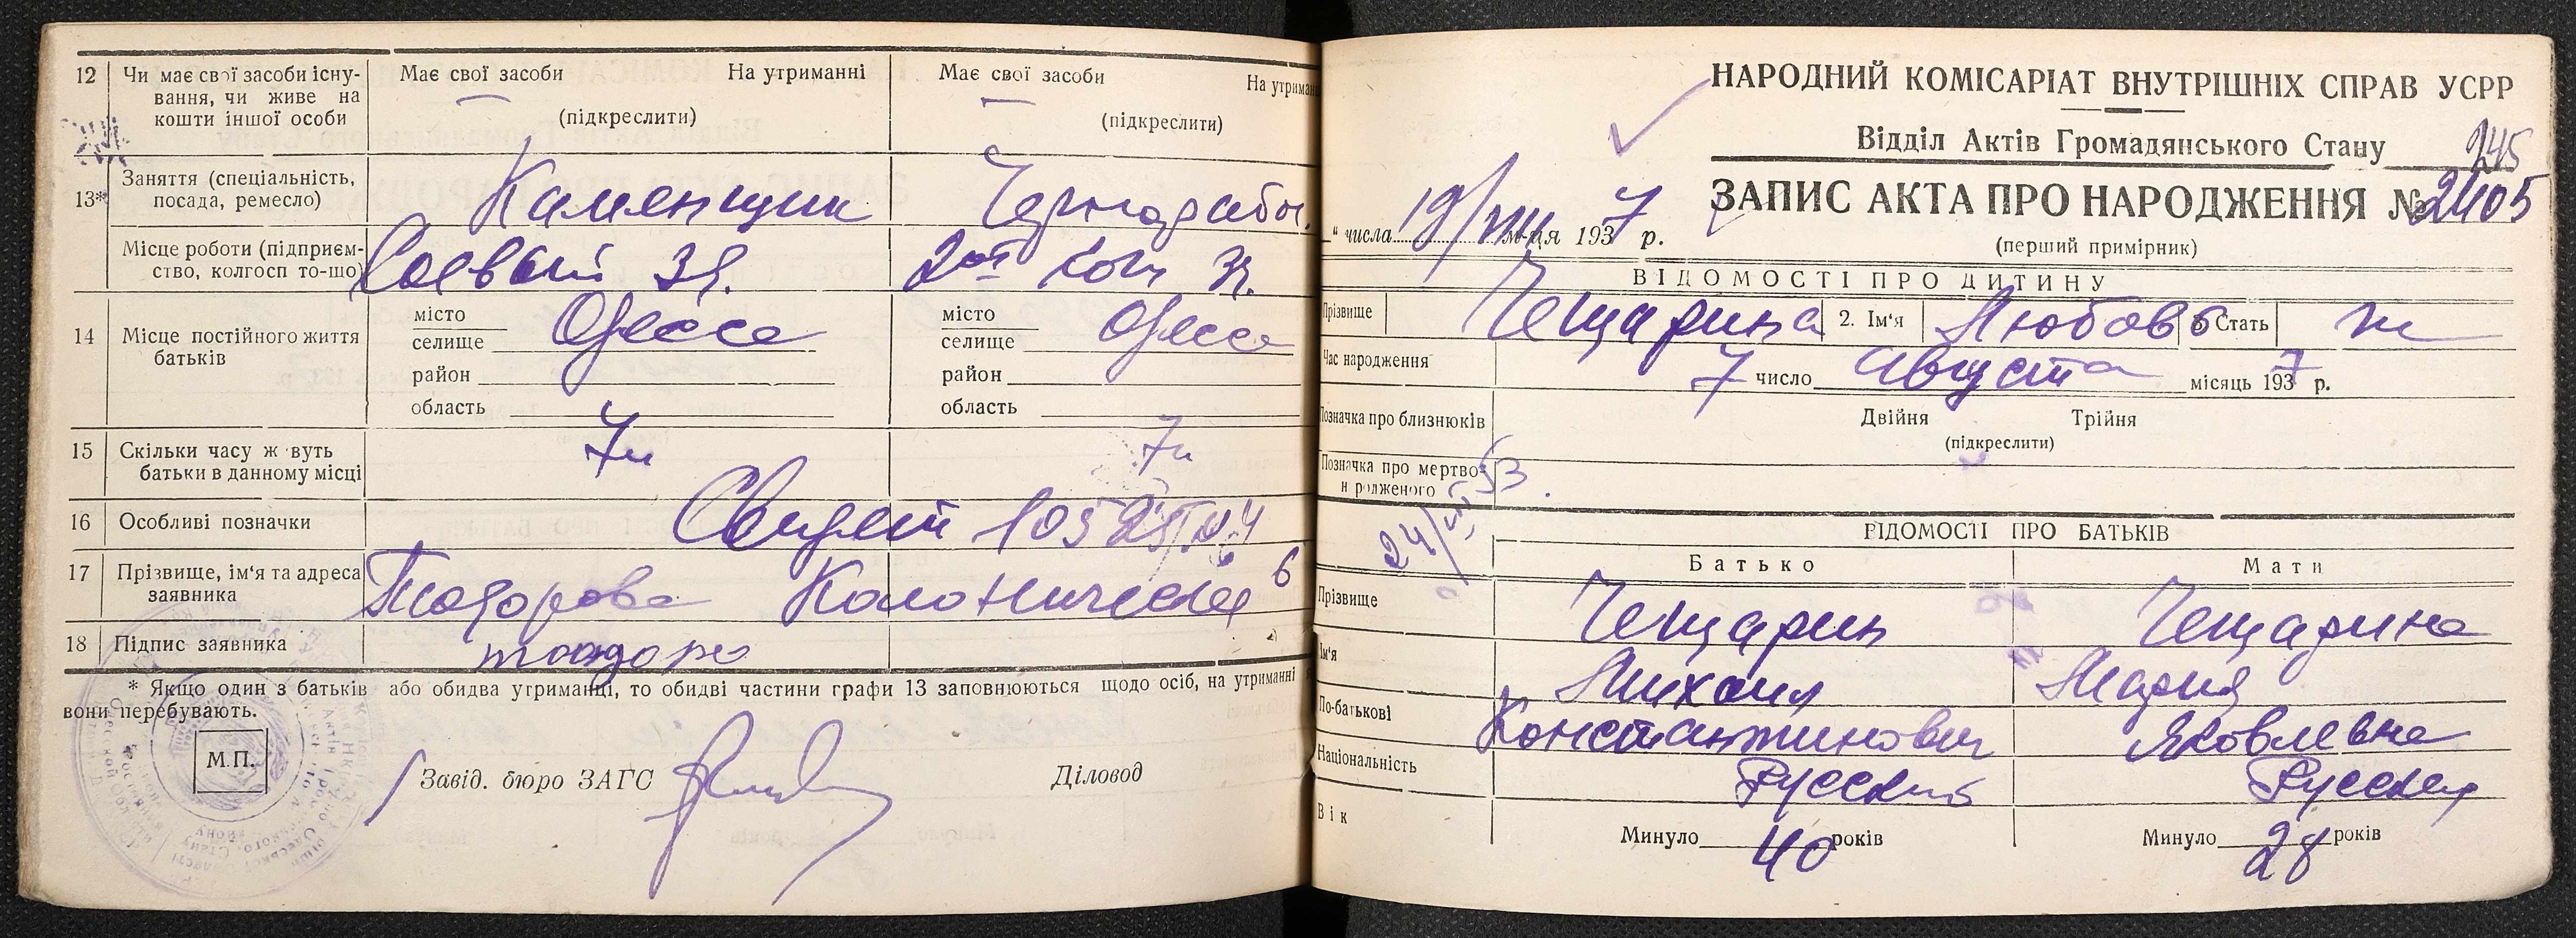 12 Чи має свої засоби існування, чи живе на кошти іншої особи
Має свої засоби На утриманні
(підкреслити)
Має свої засоби На утриман
(підкреслити)
13* Заняття (спеціальність, посада, ремесло)
Каменщик
Чернорабоч.
Місце роботи (підприємство, колгосп то-що)
14 Місце постійного життя батьків
місто
селище Одесса
район
область
місто
селище Одесса
район
область
15 Скільки часу ж вуть батьки в данному місці
7л
7л
16 Особливі позначки
17 Прізвище, ім'я та адреса заявника
Тодорова
18 Підпис заявника
* Якщо один з батьків або обидва утриманці, то обидві частини графи 13 заповнюються щодо осіб, на утриманні
вони перебувають.
М.П.
Завід. бюро ЗАГС
Діловод
НАРОДНИЙ КОМІСАРІАТ ВНУТРІШНІХ СПРАВ УСРР
Відділ Актів Громадянського Стану
245
ЗАПИС АКТА ПРО НАРОДЖЕННЯ № 2405
" числа 19/VIII м-ця 1937 р.
(перший примірник)
ВІДОМОСТІ ПРО ДИТИНУ
Прізвище Чещарина 2. Ім'я Любовь 3 Стать ж
Час народження 7 число Августа місяць 1937 р.
Позначка про близнюків Двійня Трійня
(підкреслити)
Позначка про мертвонародженого
ВІДОМОСТІ ПРО БАТЬКІВ
Батько Мати
Прізвище Чещарин Чещарина
Ім'я Михаил Мария
По-батькові Константинович Яковлевна
Національність Русский Русская
Вік Минуло 40 років Минуло 28 років